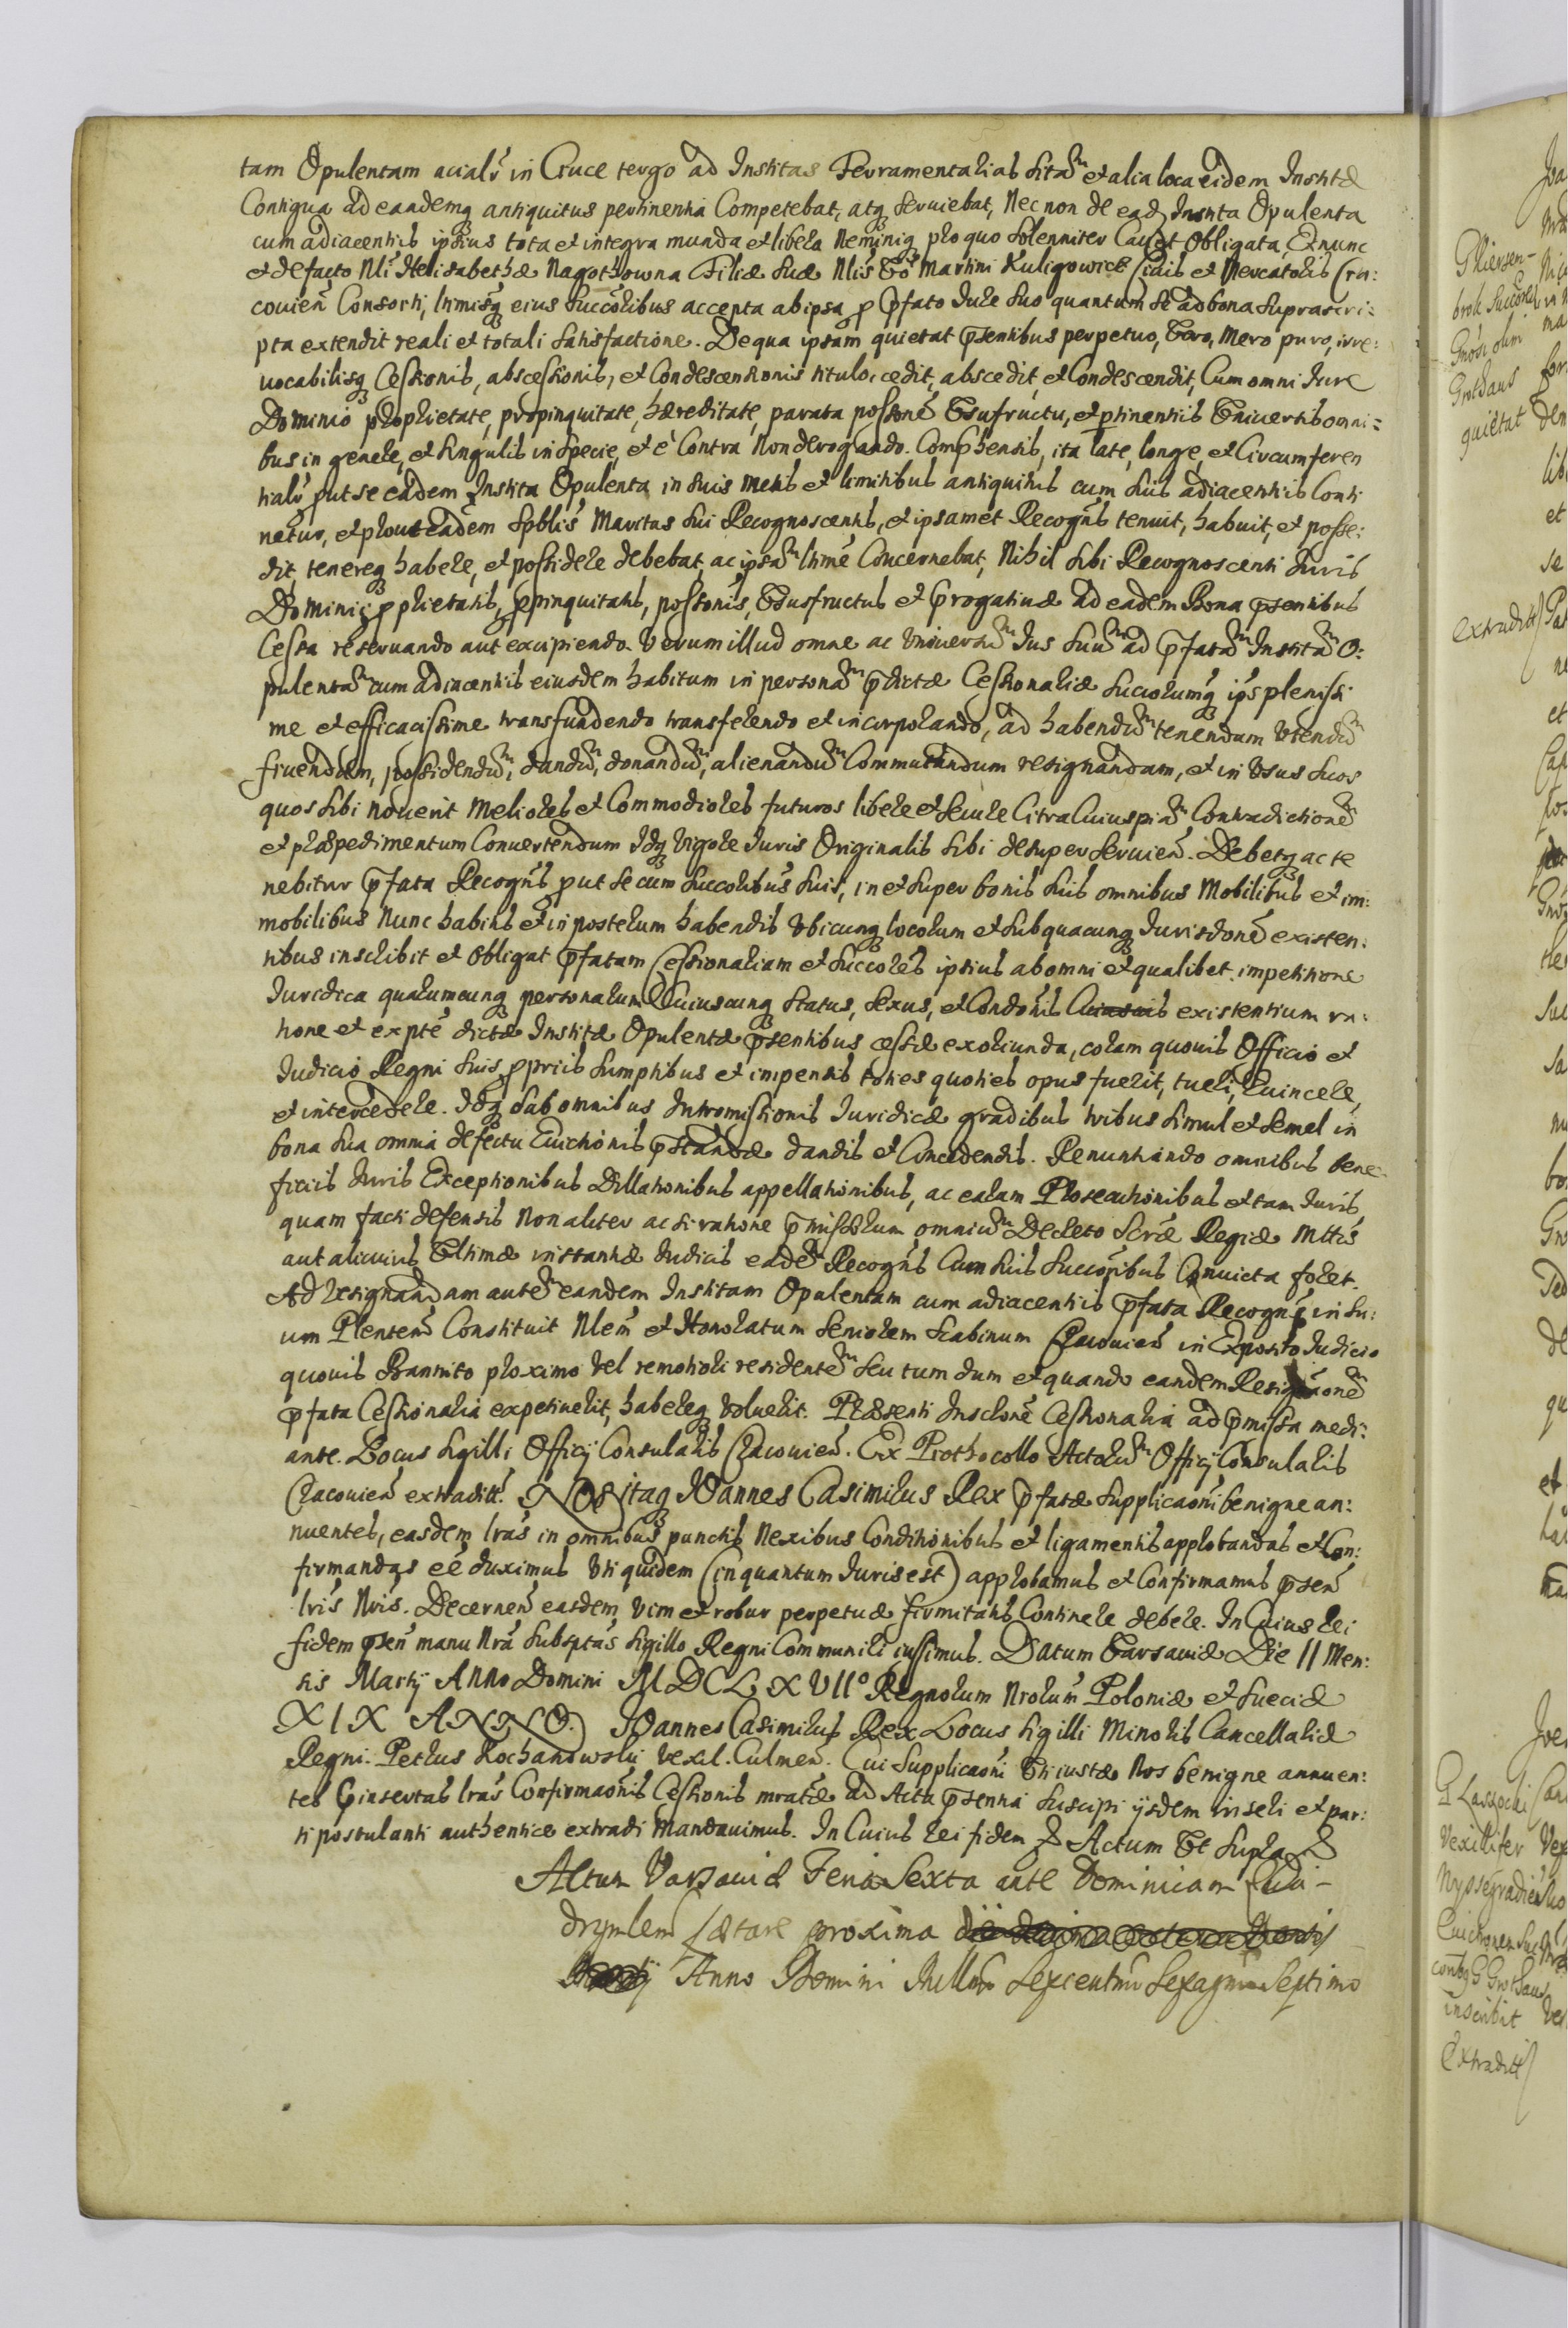 tam Opulentam acialr in Cruce tergo ad Institas Ferramentalias sitam et alia loca eidem Institæ
Contigua ad eandemq antiquitus pertinentia Competebat, atq seruiebat, Nec non de ead Instita Opulenta
cum adiacentiis ipsius tota et integra munda et libera Neminiq pro quo solenniter Obligata, Et nunc
et de facto Nli Helisabethæ Nagothowna Filiæ suæ Nlis Martini Kuligowice Ciuis et Mercatoris Cra:
couien Consorti, ltimisq eius succoribus accepta ab ipsa p pfato Iure suo quantum se ad bona suprascri:
pta extendit reali et totali satisfactione. De qua ipsam quietat psentibus perpetuo, Vero, Mero puro, irre:
uocabilisq Cessionis, abscessionis, et Condescensionis titulo, cedit, abscedit et Condescendit, Cum omni Iure
Dominio proprietate, propinquitate, hæreditate, parata possone Vsufructu, et ptinentiis Vniuersis omni:
bus in genere, et singulis in specie, et è Contra Non derogando. Comphensis, ita late, longe, et Circumferen
tialr put se eadem Instita Opulenta in suis metis et limitibus antiquitus cum suis adiacentiis Conti
netur, et prout eadem spblis Maritus sui Recognoscentis, et ipsamet Recogns tenuit, habuit, et posse:
dit, tenereq habere, et possidere debebat, ac ipsam ltime Concernebat, Nihil sibi Recognoscenti Iuris
Dominij pprietatis, ppinquitatis, possonis, Vsusfructus et Prrogatiuæ ad eadem Bona psentibus
Cessa reseruando aut excipiendo. Verum illud omne ac Vniuersum Ius suum ad pfatam Institam O:
pulentam cum adiacentiis eiusdem habitum in personam pdictæ Cessionaliæ succorumq ips plenissi
me et efficacissime transfundendo transferendo et incorporando, ad habendum tenendum Vtendum
fruendum, possidendum, dandum, donandum, alienandum Commutandum resignandam, et in Vsus suos
quos sibi nouerit Meliores et Commodiores futuros libere et secure Citra Cuiuspiam Contradictionem
et præpedimentum Conuertendum Idq Vigore Iuris Originalis sibi desuper seruien. Debetq ac te
nebitur pfata Recogns put se cum succoribus suis, in et super bonis suis omnibus Mobilibus et im:
mobilibus Nunc habitis et in posterum habendis Vbicunq locorum et sub quacunq Iurisdone existen:
tibus inscribit et Obligat pfatam Cessionaliam et succores ipsius ab omni et qualibet impetitione
Iuridica quarumcunq personarum Cuiuscunq status, sexus, et Condonis existentium ra:
tione et expte dictæ Institæ Opulentæ psentibus cessæ exoriunda, coram quouis Officio et
Iudicio Regni suis ppriis sumptibus et impensis toties quoties opus fuerit, tueri, Euincere,
et intercedere. Idq sub omnibus Intromissionis Iuridicæ gradibus tribus simul et semel in
bona sua omnia defectu Euictionis pstandæ dandis et Concedendis. Renuntiando omnibus bene
ficiis Iuris Exceptionibus Dillationibus appellationibus, ac earum Prosecutionibus et tam Iuris
quam facti defensis Non aliter ac si ratione pmissorum omnium Decreto Scræ Regiæ Mttis
aut alicuius Vltimæ instantiæ Iudiciis eadem Recogns Cum suis succoribus Conuicta foret.
Ad resignandam autem eandem Institam Opulentam cum adiacentiis pfata Recogns in su:
um Plentem Constituit Nlem et Honoratum seniorem scabinum Cracouien in Exposito Iudicio
quouis Bannito proximo Vel remotiori residentem seu tum dum et quando eandem Resignaonem
pfata Cessionalia expetiuerit, habereq Voluerit. Præsenti Inscrone Cessionalia ad pmissa medi:
ante. Locus sigilli Officij Consularis Cracouien. Ex Prothocollo Actorum Officij Consularis
Cracouien extraditt. NOS itaq IOannes Casimirus Rex pfatæ supplicaoni benigne an:
nuentes, easdem lras in omnibus punctis Nexibus Conditionibus et ligamentis approbandas et Con:
firmandas eé duximus Vti quidem (in quantum Iuris est) approbamus et Confirmamus psen
lris Nris. Decernen easdem Vim et robur perpetuæ firmitatis Continere debere. In Cuius rei
fidem psen manu Nra subsptas sigillo Regni Communiri iussimus. Datum Varsauiæ Die 11 Men:
sis Martij Anno Domini MDCLXVIIo Regnorum Nrorum Poloniæ et sueciæ
XIX ANNO. IOannes Casimirus Rex Locus sigilli Minoris Cancellariæ
Regni. Petrus Kochanowski Vexil. Culmen. Cui supplicaoni Vti iustæ Nos benigne annuen:
tes pinsertas lras Confirmaonis Cessionis mratæ ad Acta psentia suscipi ijsdem inseri et par:
ti postulanti authentice extradi Mandauimus. In Cuius rei fidem Actum Vt supra
Actum Varsauiæ Feria Sexta ante Dominicam Qua-
drgmlem lætare proxima
Anno Domini Millmo Sexcentmo Sexagmo Septimo
Phiersen-
brok Succores
Gnosi olim
Grothaus
quietat
extraditt
G Lassocki
Vexillifer
Wyssegradien
Euictionem sue
contra G Grothaus
inscribit
Extraditt